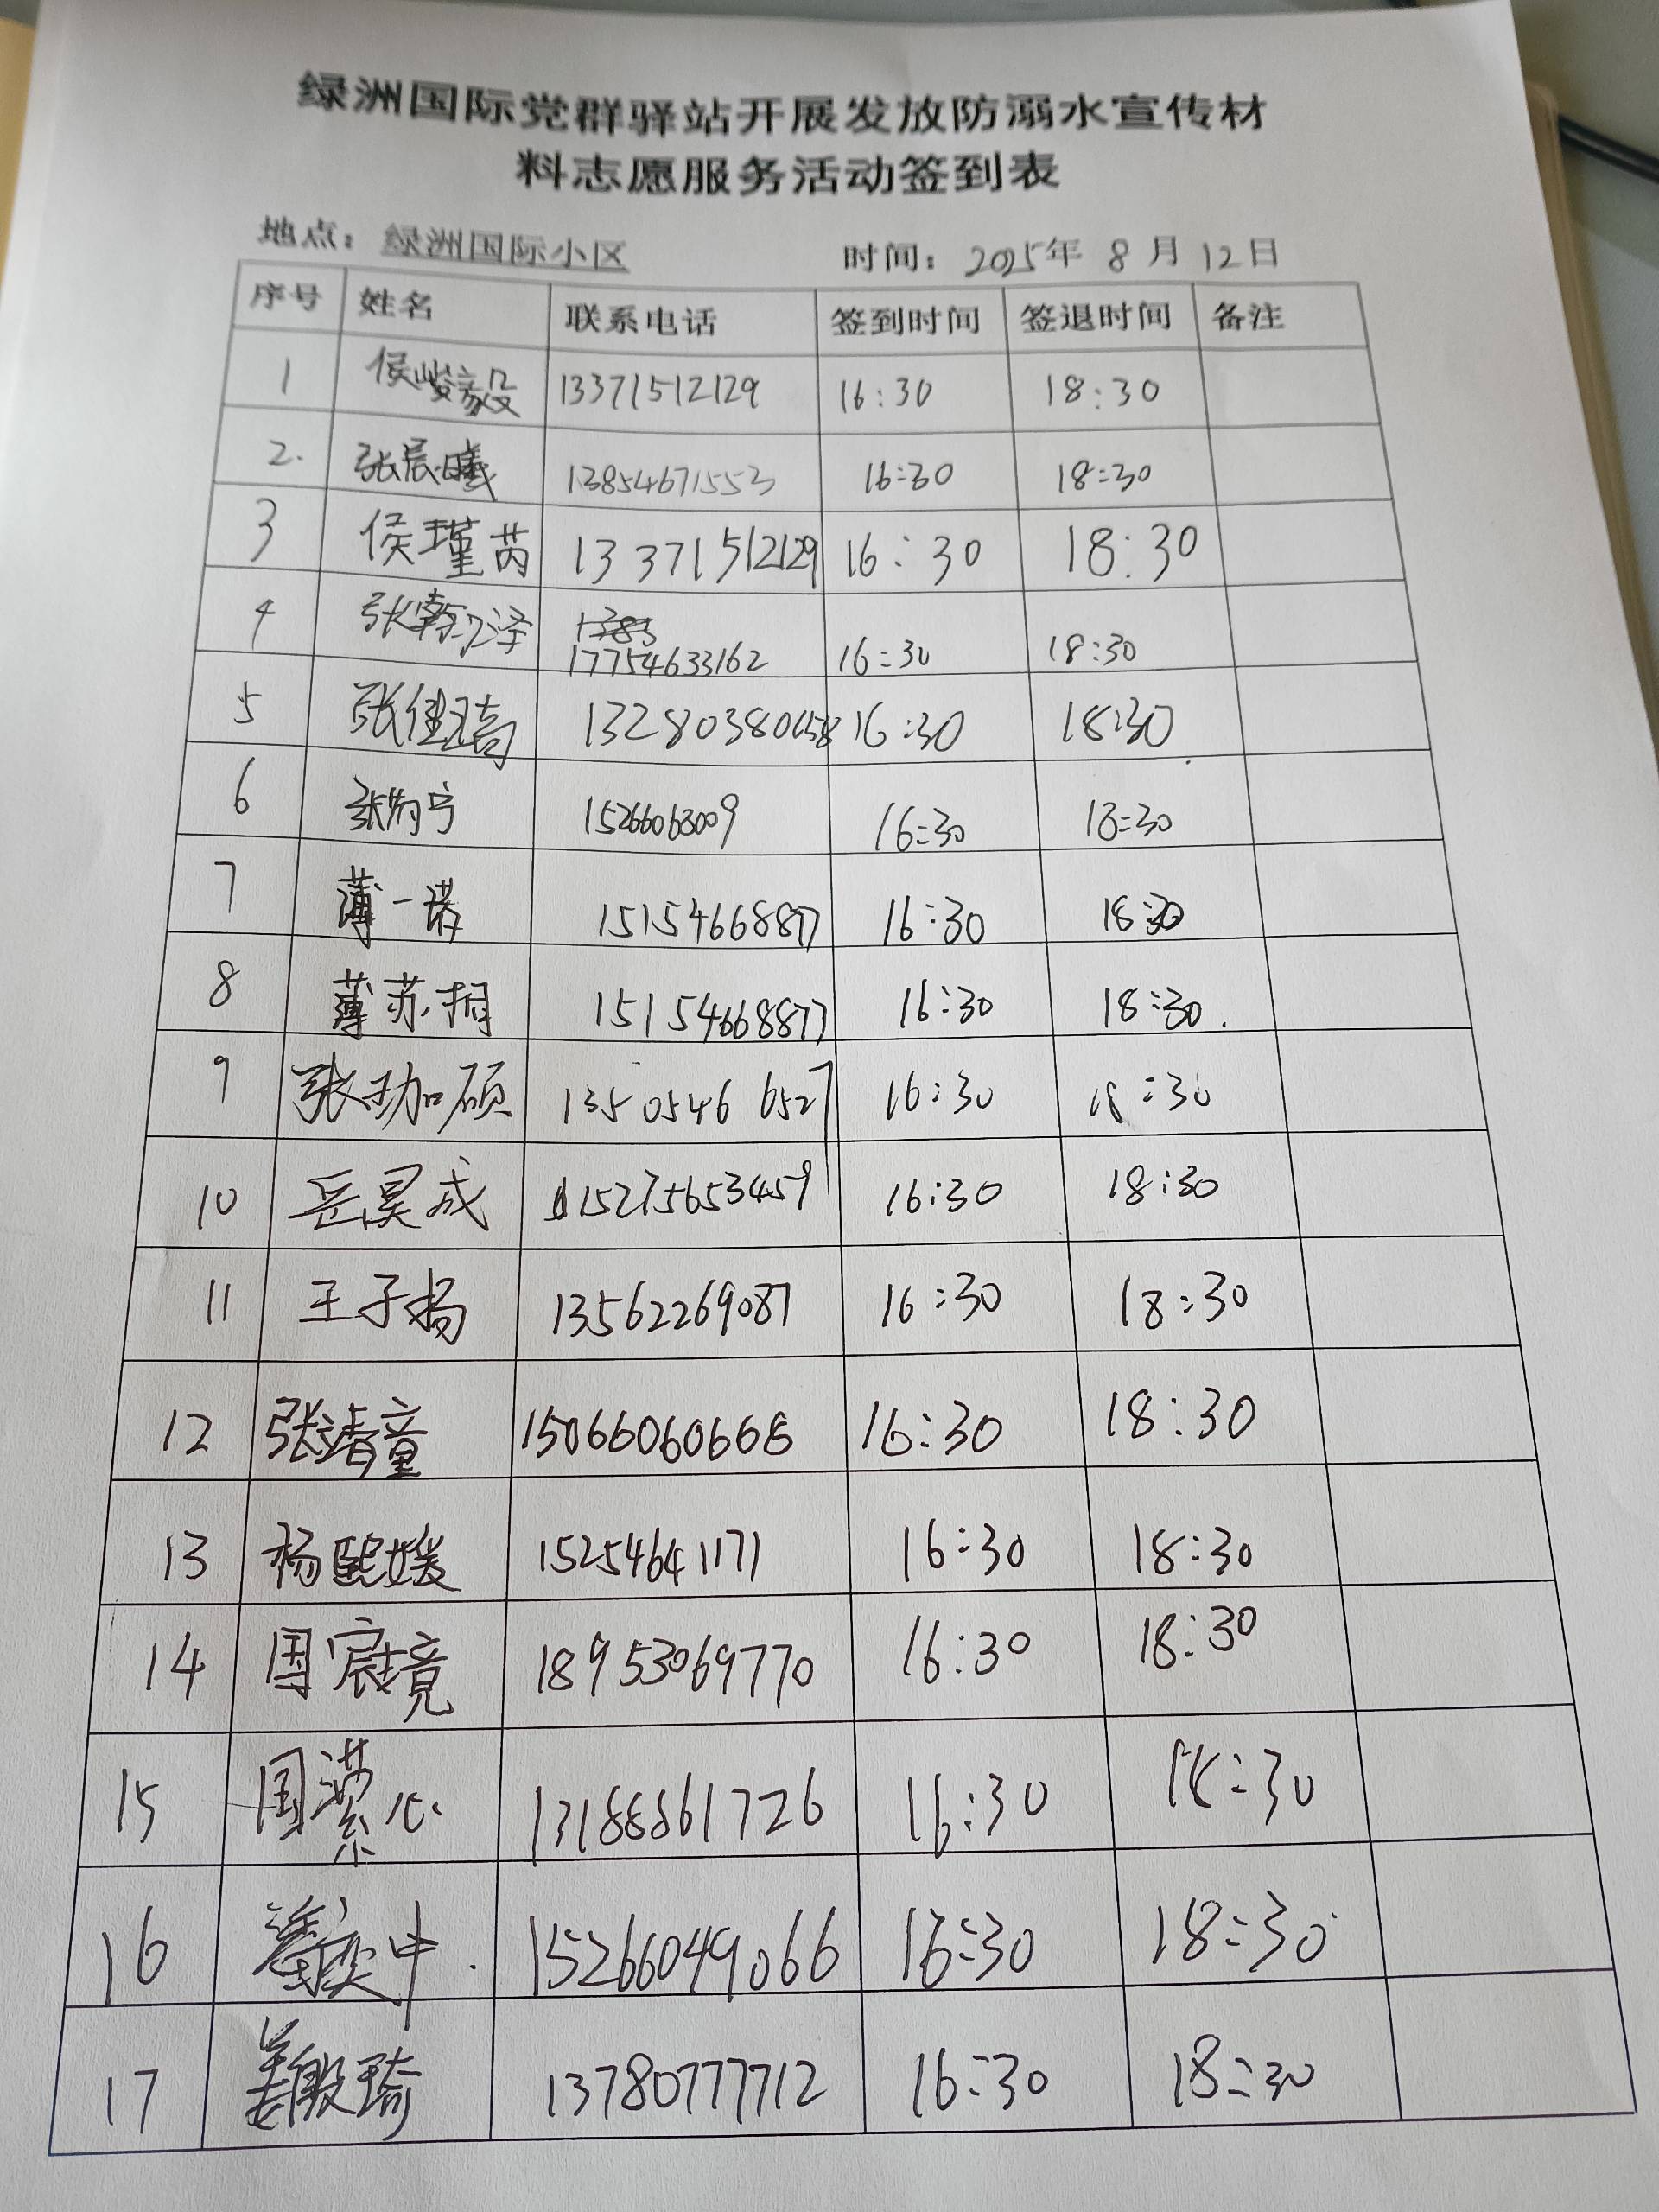 绿洲国际党群驿站开展发放防溺水宣传材
料志愿服务活动签到表
地点：绿洲国际小区 时间：2025年 8月 12日
序号 姓名 联系电话 签到时间 签退时间 备注
1 13371512129 16:30 18:30
2. 张辰曦 13854671553 16:30 18:30
3 侯瑾芮 13371512129 16:30 18:30
4 张翰泽 17754633162 16:30 18:30
5 张佳琦 13280380658 16:30 18:30
6 15266063009 16:30 18:30
7 薄一诺 15154668877 16:30 18:30
8 薄苏桐 15154668877 16:30 18:30
9 张珈硕 13505466527 16:30 18:30
10 岳昊成 15275653459 16:30 18:30
11 王子扬 13562269087 16:30 18:30
12 张靖童 15066060666 16:30 18:30
13 杨熙媛 15254641171 16:30 18:30
14 周宸境 18953069770 16:30 18:30
15 周潆心 13188861726 16:30 18:30
16 15266049066 16:30 18:30
17 姜殿琦 13780777712 16:30 18:30